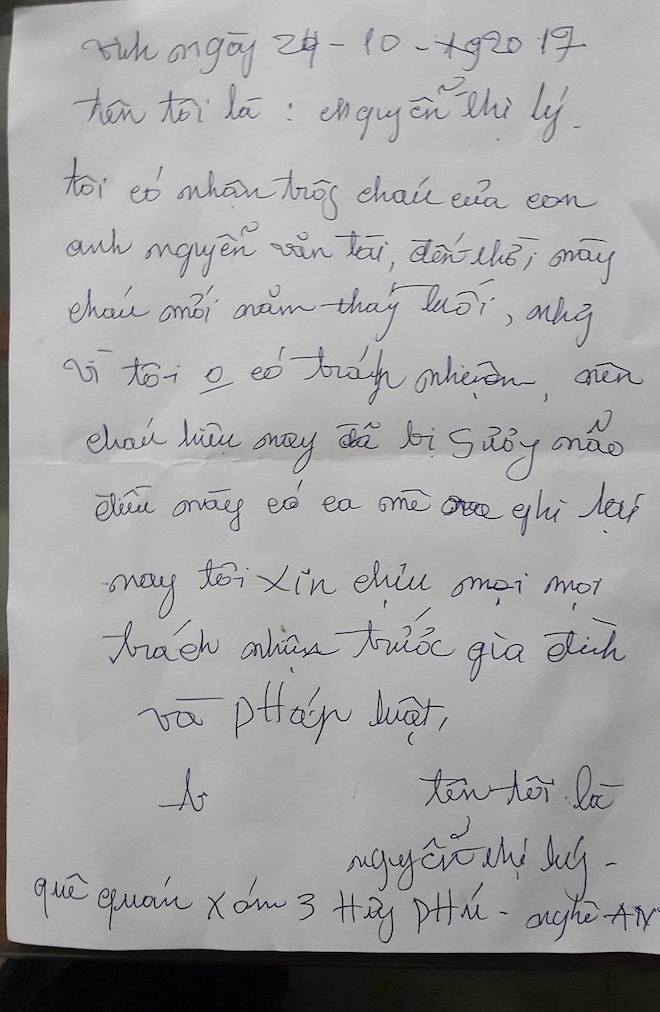 vinh ngày 24 - 10 - 2017
tên tôi là : Nguyễn thị lý -
tôi có nhận trôg cháu của con
anh nguyễn văn tài, đến thời này
cháu mới năm tháy tuổi, nhg
vì tôi o có trách nhiệm, nên
cháu hiện nay đã bị sủy não
điều này có ca mê ghi lại
nay tôi xin chịu mọi mọi
trách nhiệm trước gia đình
và pHáp luật,
tên tôi là
nguyễn thị lý -
quê quán xóm 3 Hủg pHú - nghê - AN